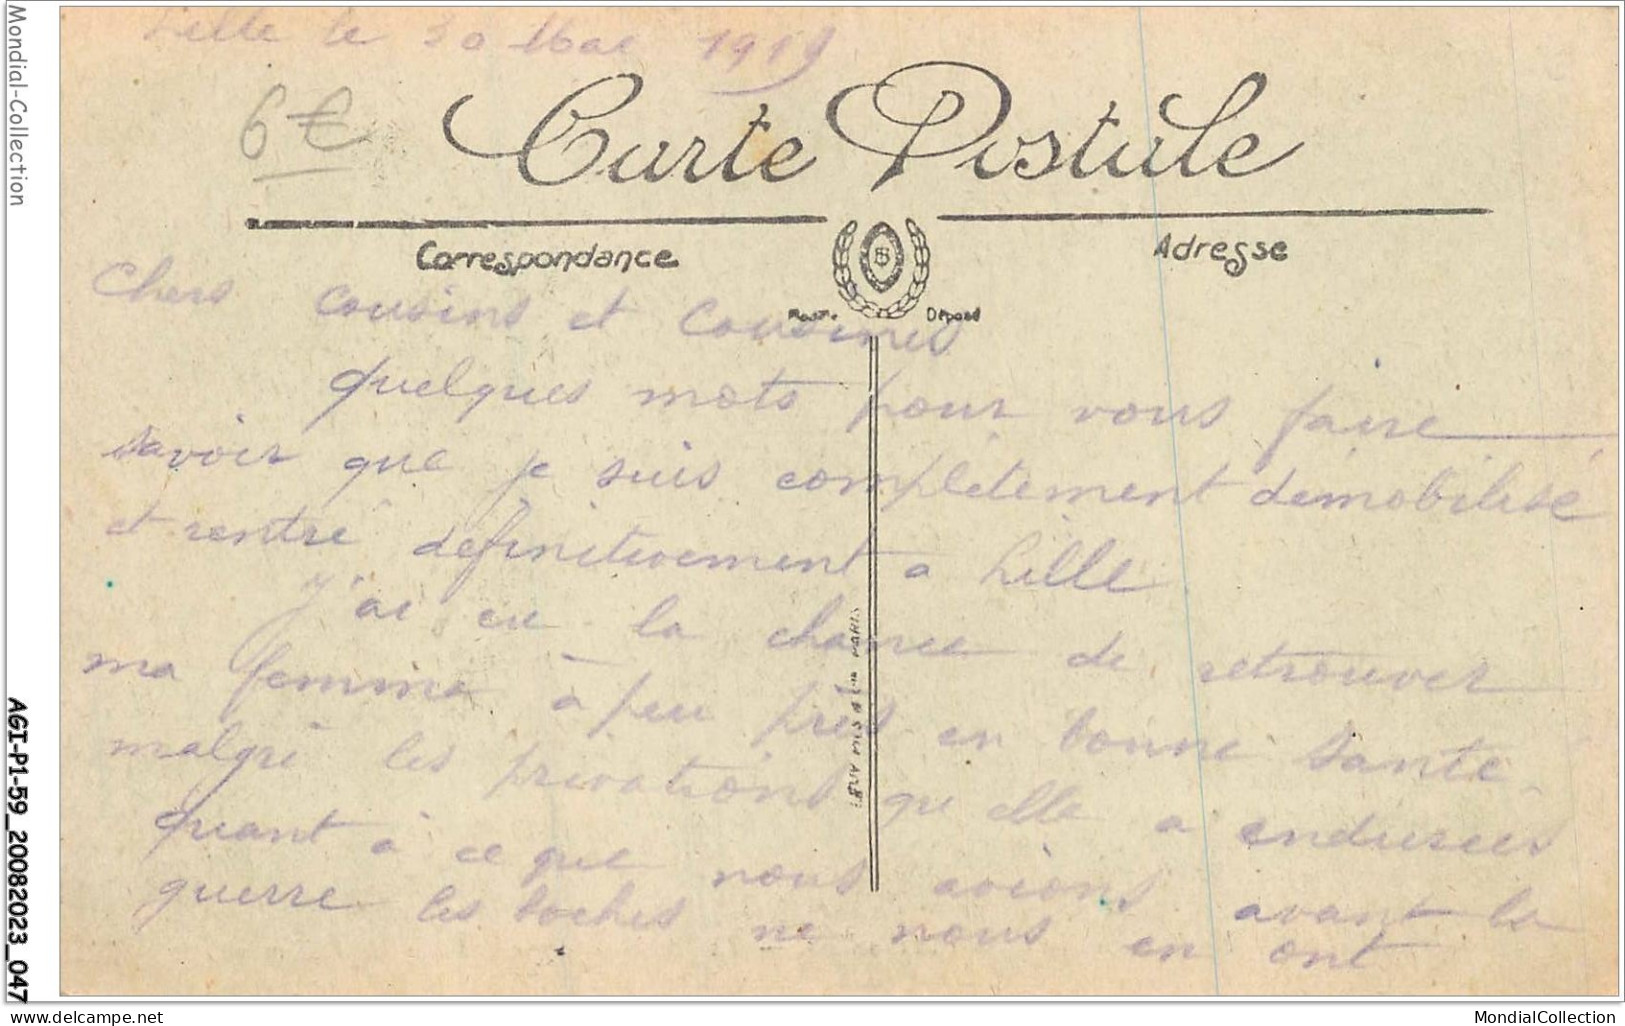 Lille le 30 Mai 1919
6 €
Carte Postale
Correspondance
Adresse
Déposé
Chers cousins et Cousines
quelques mots pour vous faire
savoir que je suis complètement démobilisé
et rentré definitivement a Lille
J'ai eu la chance de retrouver
ma femme à peu près en bonne santé
malgré les privations qu'elle a endurées
quant à ce que nous avions avant la
guerre les boches ne nous en ont
Mondial-Collection
AGI-P1-59_20082023_047
www.delcampe.net
MondialCollection